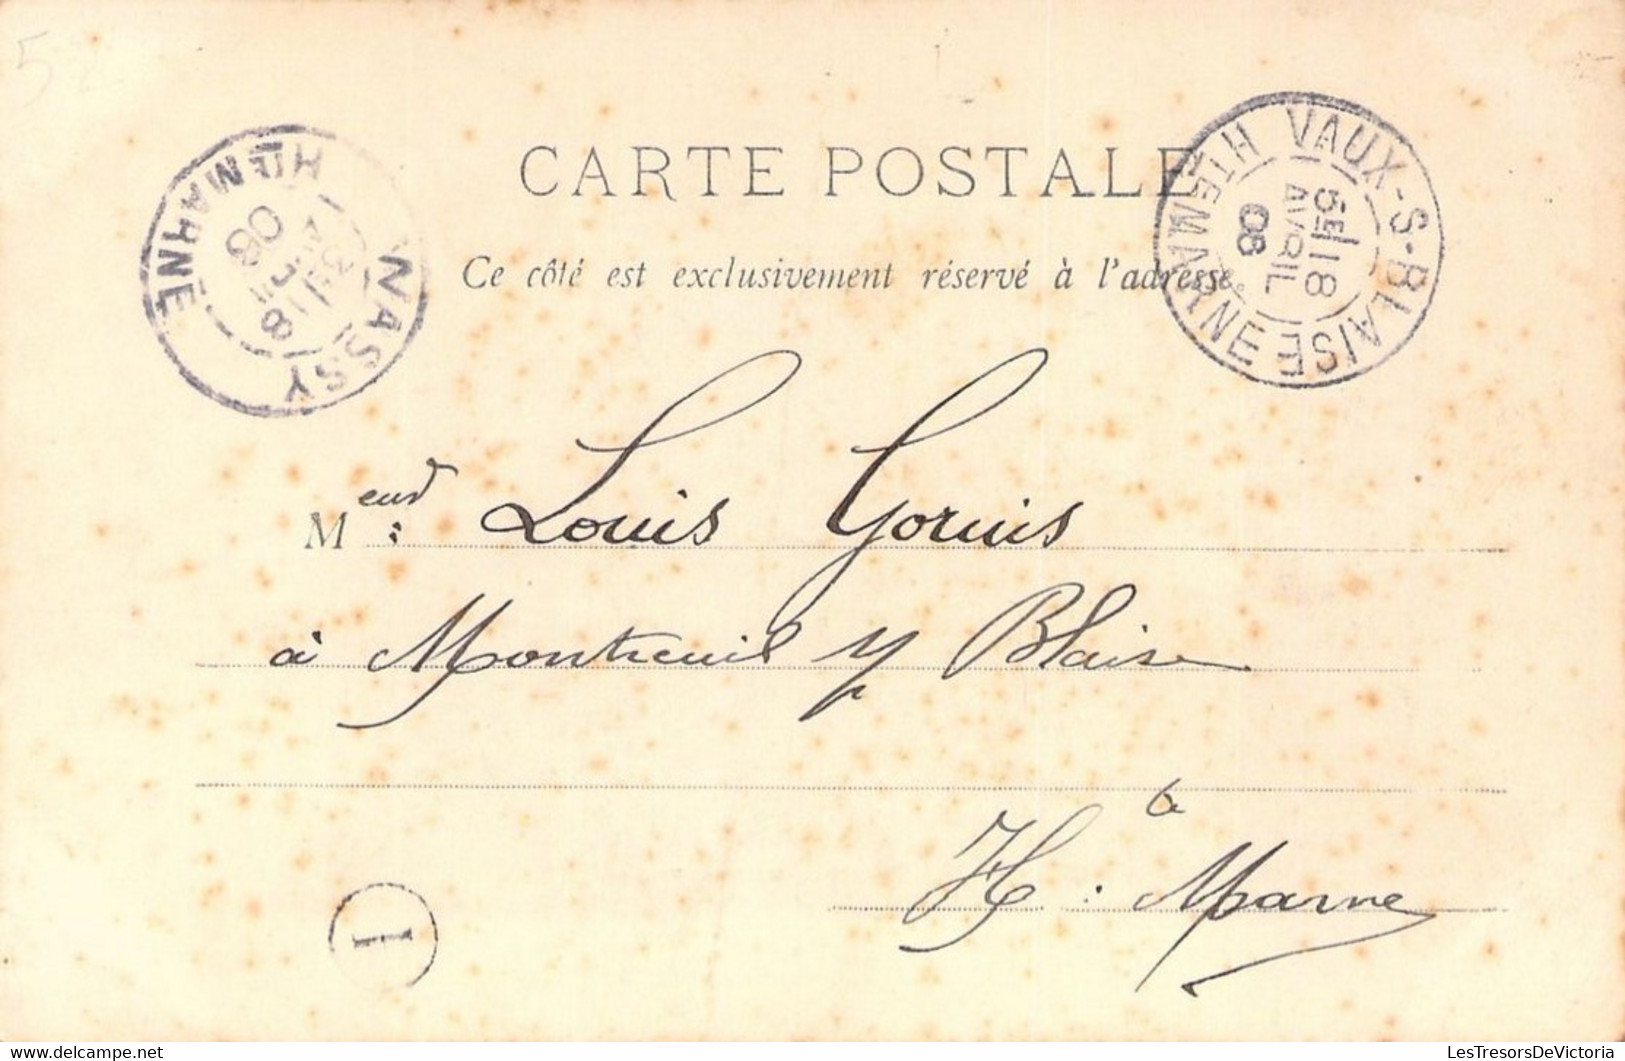 CARTE POSTALE
Ce côté est exclusivement réservé à l'adresse.
VAUX-S-BLAISE
HTE MARNE
5E 18
AVRIL
08
WASSY
HTE MARNE
18
08
M eur : Louis
à Montreuil s/ Blaise
H te : Marne
I
LesTresorsDeVictoria